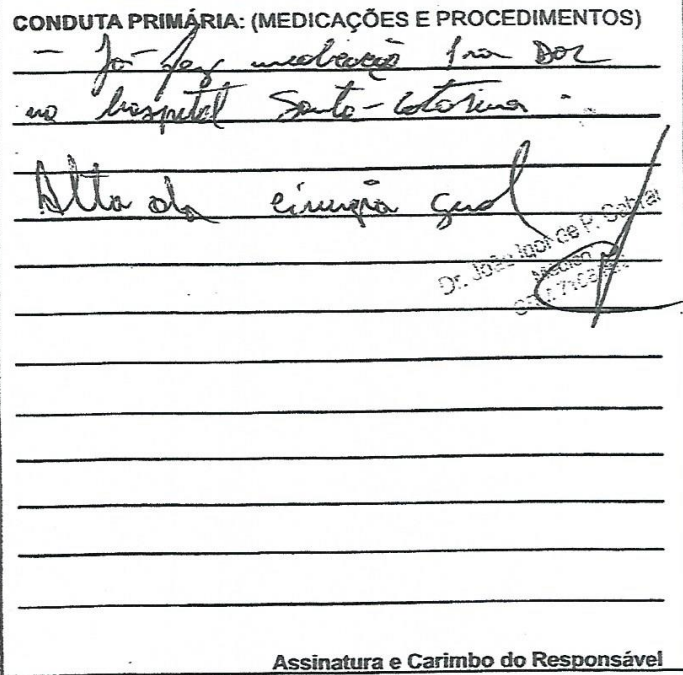 CONDUTA PRIMÁRIA: (MEDICAÇÕES E PROCEDIMENTOS)
- Já fez medicação pra DOR
no hospital Santa-Catarina.
Alta da cirurgia geral
Dr. João Igor de P. Cabral
Médico
Assinatura e Carimbo do Responsável